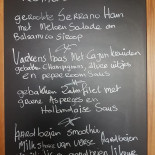 gerookte Serrano Ham
met Meloen Salade en
Balsamico Siroop
Varkens has Met Cajun kruiden
Champignons
en peperroom Saus
gebakken Zalmfilet met
groene Asperges en
Hollandaise Saus
Aardbeien Smoothie
Milkshake van verse Aardbeien